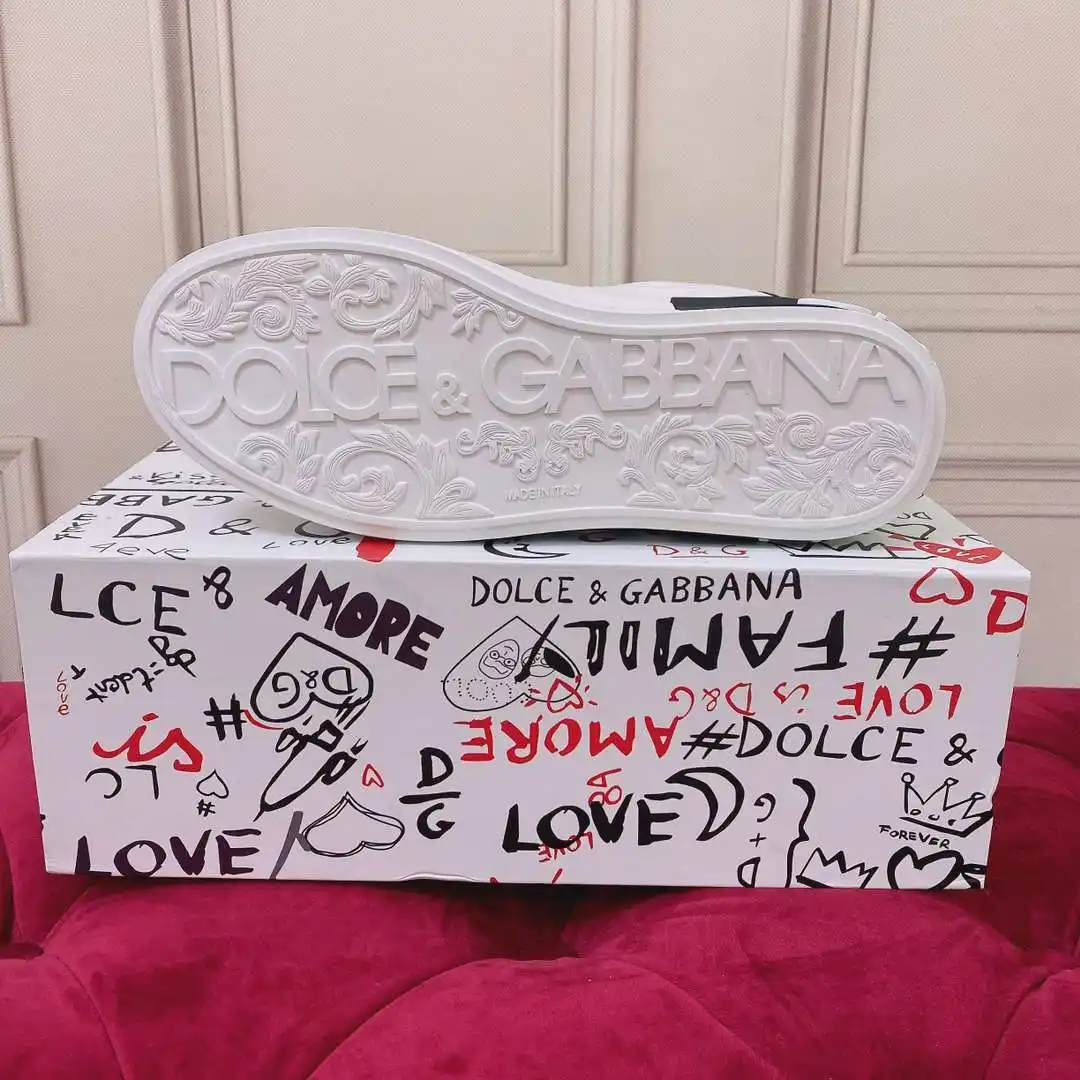 DOLCE & GABBANA
MADE IN ITALY
GABB
D & G
4eve
Love
D&G
LOVE
LCE &
AMORE
DOLCE & GABBANA
#FAMIL
D
Love
D&G
LOVE is D&G
is
#
AMORE
#DOLCE &
LC
#
D
G
LOVE
LOVE
G + D
FOREVER
LOVE